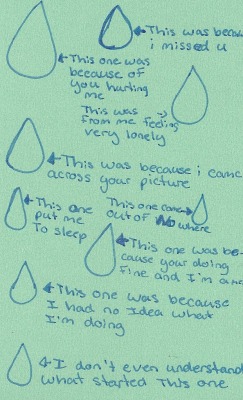 This was becau
i missed u
This one was
because of
you hurting
me
This was
from me feeling
very lonely
This was because i came
across your picture
This one
put me
To sleep
This one came
out of No where
This one was be-
cause your doing
fine and I'm a
This one was because
I had no Idea what
I'm doing
I don't even understand
what started This one